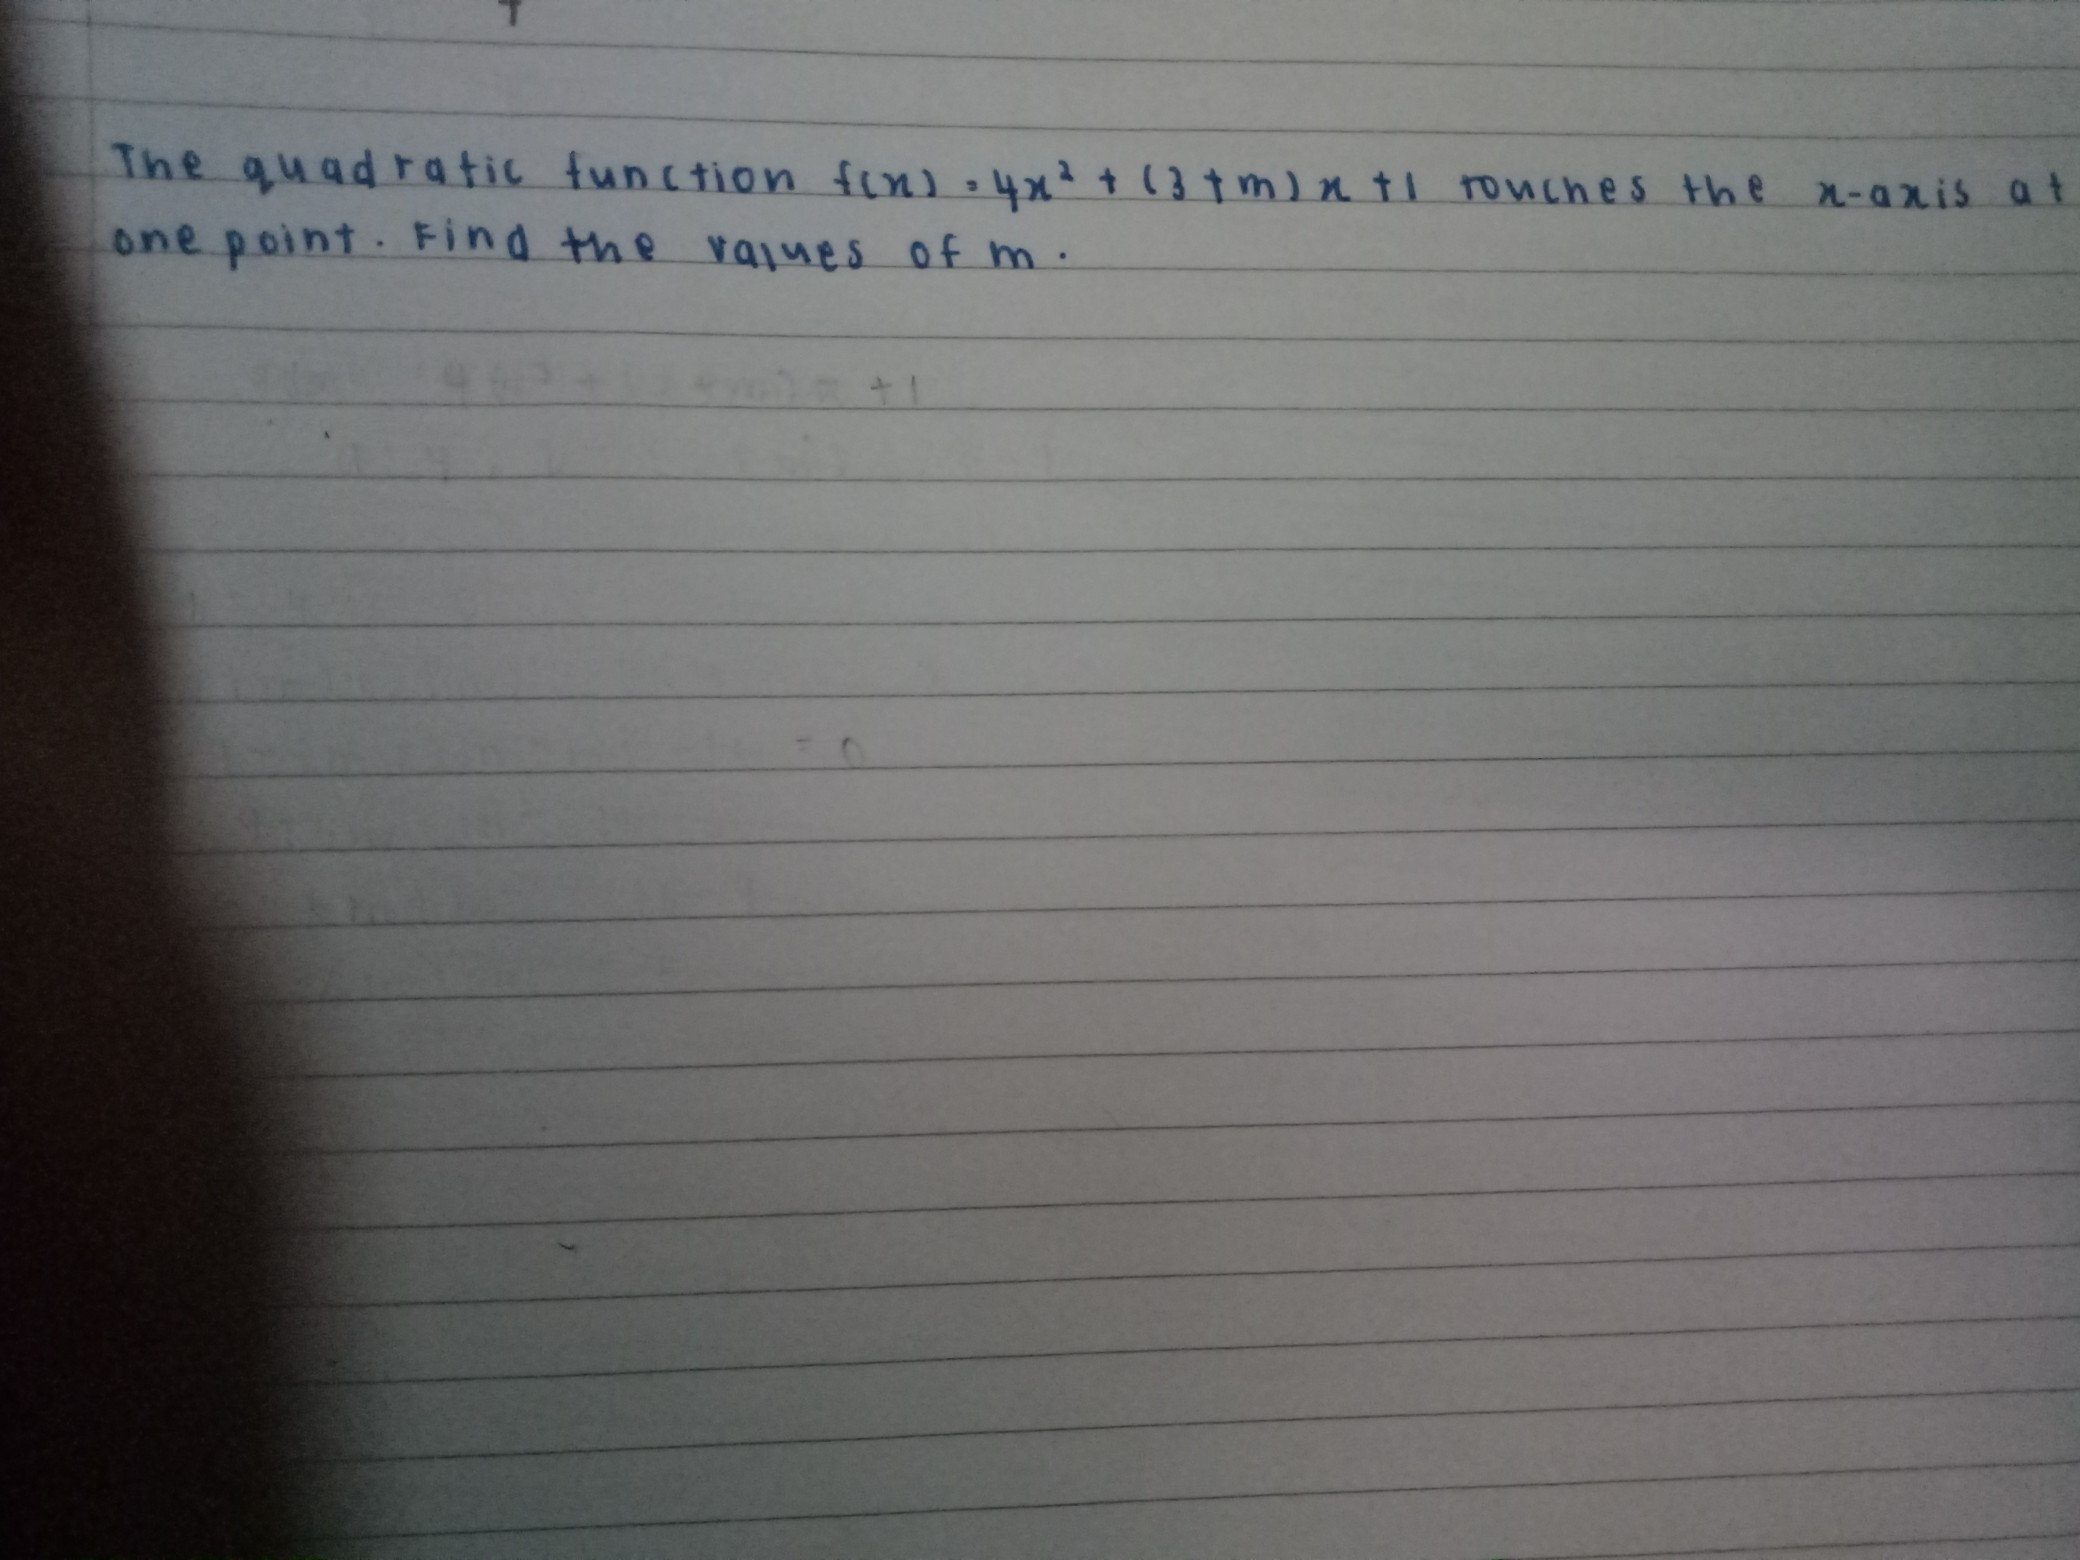 The quadratic function f(x) = 4x² + (3+m)x +1 touches the x-axis at
one point. Find the values of m.
+1
= 0